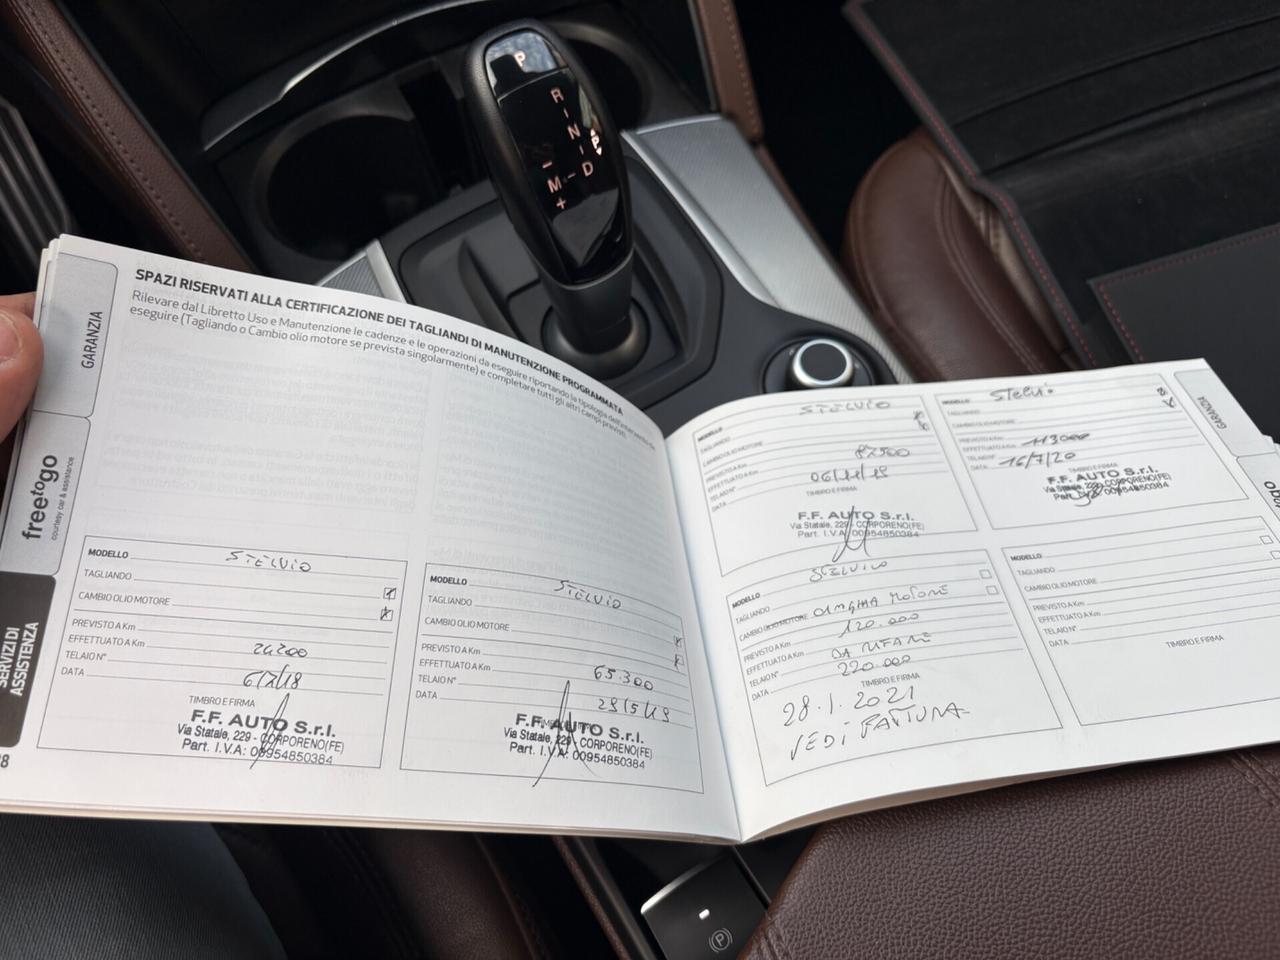 P
R
N
D
M
+
SPAZI RISERVATI ALLA CERTIFICAZIONE DEI TAGLIANDI DI MANUTENZIONE PROGRAMMATA
Rilevare dal Libretto Uso e Manutenzione le cadenze e le operazioni da eseguire riportando la tipologia dell'intervento da
eseguire (Tagliando o Cambio olio motore se prevista singolarmente) e completare tutti gli altri campi previsti.
GARANZIA
freetogo
courtesy car & assistance
SERVIZI DI
ASSISTENZA
MODELLO STELVIO
TAGLIANDO
CAMBIO OLIO MOTORE
PREVISTO A Km
EFFETTUATO A Km
TELAIO N°
DATA 6/7/18
TIMBRO E FIRMA
F.F. AUTO S.r.l.
Via Statale, 229 - CORPORENO(FE)
Part. I.V.A: 00954850384
MODELLO STELVIO
TAGLIANDO
CAMBIO OLIO MOTORE
PREVISTO A Km
EFFETTUATO A Km 65.300
TELAIO N°
DATA 29/5/19
F.F. AUTO S.r.l.
Via Statale, 229 - CORPORENO(FE)
Part. I.V.A: 00954850384
MODELLO STELVIO
TAGLIANDO
CAMBIO OLIO MOTORE
PREVISTO A Km
EFFETTUATO A Km 87500
TELAIO N°
DATA 06/11/19
TIMBRO E FIRMA
F.F. AUTO S.r.l.
Via Statale, 229 - CORPORENO(FE)
Part. I.V.A: 00954850384
MODELLO
TAGLIANDO
CAMBIO OLIO MOTORE
PREVISTO A Km
EFFETTUATO A Km 113000
TELAIO N°
DATA 16/7/20
TIMBRO E FIRMA
F.F. AUTO S.r.l.
Via Statale, 229 - CORPORENO(FE)
Part. I.V.A: 00954850384
GARANZIA
MODELLO STELVIO
TAGLIANDO
CAMBIO OLIO MOTORE MOTORE
PREVISTO A Km 120.000
EFFETTUATO A Km DA RIFARE
TELAIO N° 220.000
DATA
TIMBRO E FIRMA
28.1.2021
VEDI FATTURA
MODELLO
TAGLIANDO
CAMBIO OLIO MOTORE
PREVISTO A Km
EFFETTUATO A Km
TELAIO N°
DATA
TIMBRO E FIRMA
P